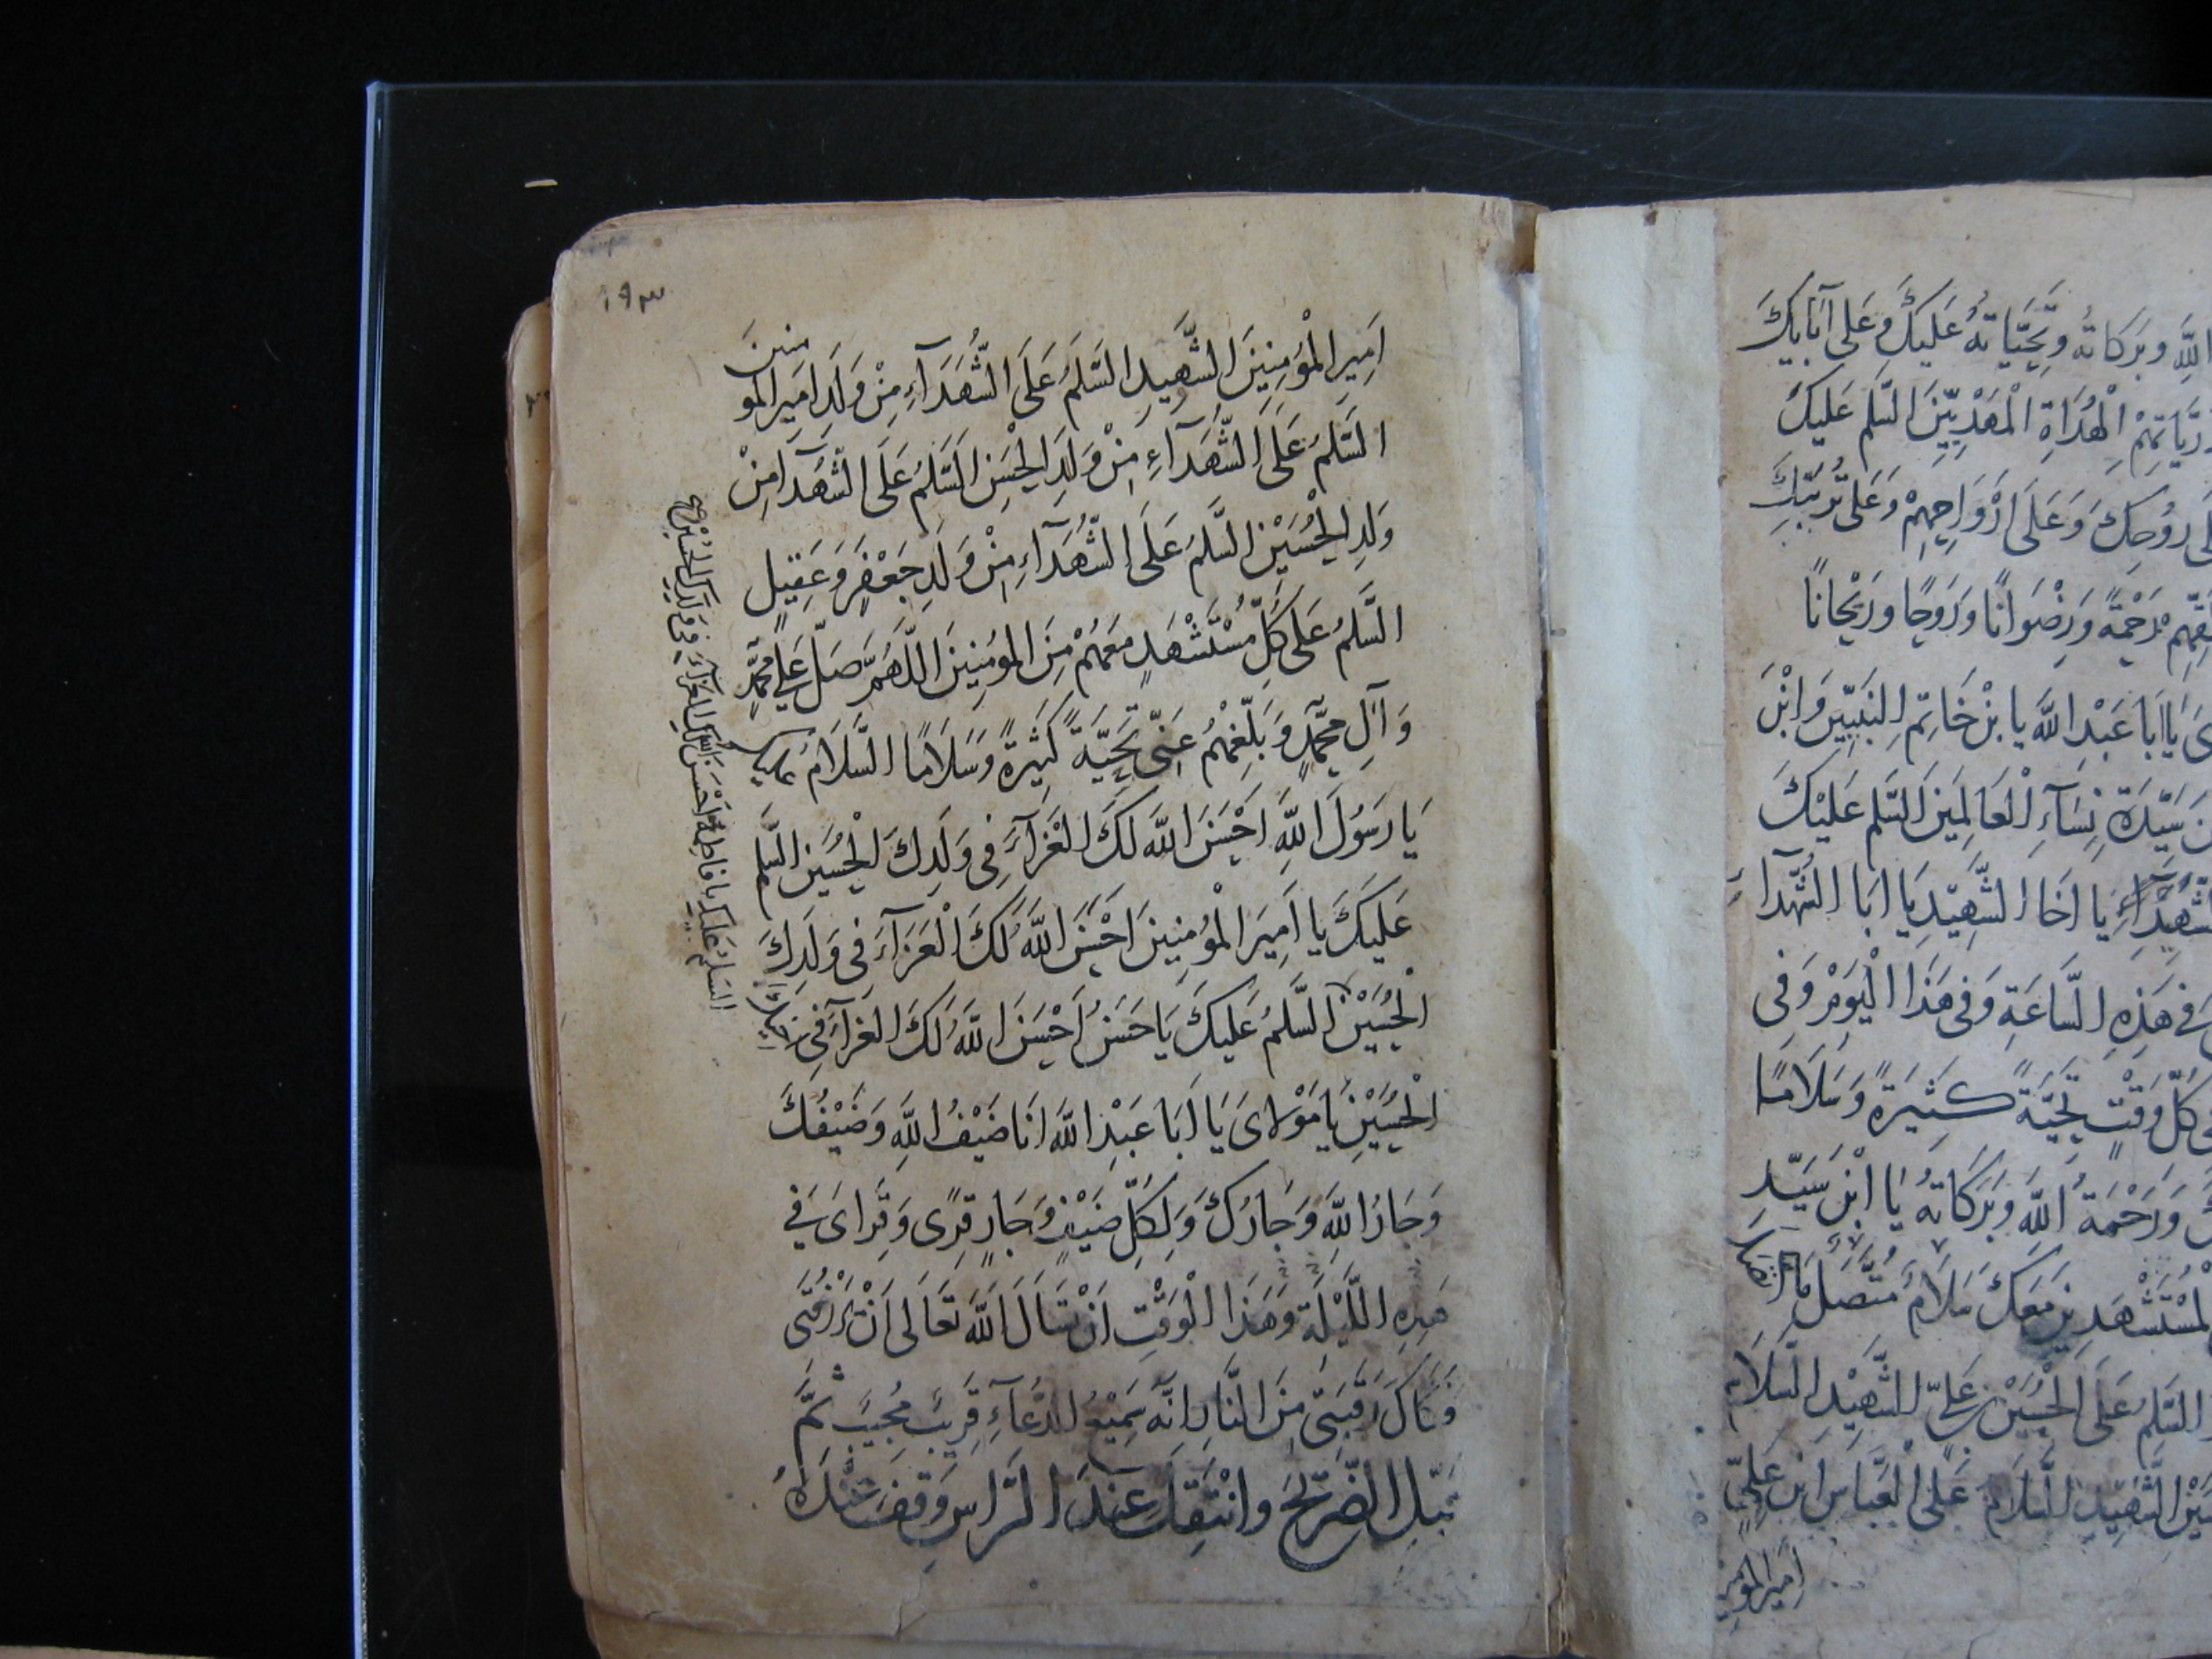 الله وبركاته وتحياته عليك وعلى آبائك
الهداة المهديين السلم عليك
روحك وعلى ارواحهم وعلى تربتك
رحمة ورضوانا وروحا وريحانا
يا ابا عبد الله يا بن خاتم النبيين وابن
سيدة نساء العالمين السلم عليك
يا اخا الشهيد يا ابا الشهدآء
في هذه الساعة وفي هذا اليوم وفي
كل وقت تحية كثيرة وسلاما
ورحمة الله وبركاته يا ابن سيد
المستشهدين معك سلام متصل ما اتصل
السلم على الحسين بن علي الشهيد السلام
الشهيد السلام على العباس ابن علي
امير المؤمنين
١٩٣
اَمِيرِ الْمُؤْمِنِينَ الشَّهِيدِ السَّلَمُ عَلَى الشُّهَدَآءِ مِنْ وَلَدِ اَمِيرِ المؤمنين
السَّلَمُ عَلَى الشُّهَدَآءِ مِنْ وَلَدِ الْحَسَنِ السَّلَمُ عَلَى الشُّهَدَآ مِنْ
وَلَدِ الْحُسَيْنِ السَّلَمُ عَلَى الشُّهَدَآءِ مِنْ وَلَدِ جَعْفَرٍ وَعَقِيلٍ
السَّلَمُ عَلَى كُلِّ مُسْتَشْهَدٍ مَعَهُمْ مِنَ المؤمِنِينَ اللَّهُمَّ صَلِّ عَلَى مُحَمَّدٍ
وَآلِ مُحَمَّدٍ وَبَلِّغْهُمْ عَنِّي تَحِيَّةً كَثِيرَةً وَسَلَامًا السَّلَامُ عليك
يَا رَسُولَ اللَّهِ اَحْسَنَ اللَّهُ لَكَ الْعَزَآءَ فِي وَلَدِكَ الْحُسَيْنِ السلم
عَلَيْكَ يا اَمِيرَ الْمُؤْمِنِينَ اَحْسَنَ اللَّهُ لَكَ الْعَزَآءَ فِي وَلَدِكَ
الْحُسَيْنِ السَّلَمُ عَلَيْكَ يَا حَسَنُ اَحْسَنَ اللَّهُ لَكَ الْعَزَآءَ فِي اخيك
الْحُسَيْنِ يَا مَوْلَايَ يَا اَبَا عَبْدِ اللَّهِ اَنَا ضَيْفُ اللَّهِ وَضَيْفُكَ
وَجَارُ اللَّهِ وَجَارُكَ وَلِكُلِّ ضَيْفٍ وَجَارٍ قِرًى وَقِرَايَ فِي
هَذِهِ اللَّيْلَةِ وَهَذَا الْوَقْتِ اَنْ تَسْاَلَ اللَّهَ تَعَالَى اَنْ يَرْزُقَنِي
فَكَاكَ رَقَبَتِي مِنَ النَّارِ اِنَّهُ سَمِيعُ الدُّعَآءِ قَرِيبٌ مُجِيبٌ ثُمَّ
قَبِّلِ الضَّرِيحَ وَانْتَقِلْ عِنْدَ الرَّاسِ وَقِفْ عِنْدَهُ
السلم عليك يا فاطمة احسن الله لك العزآء في ولدك الحسين صح